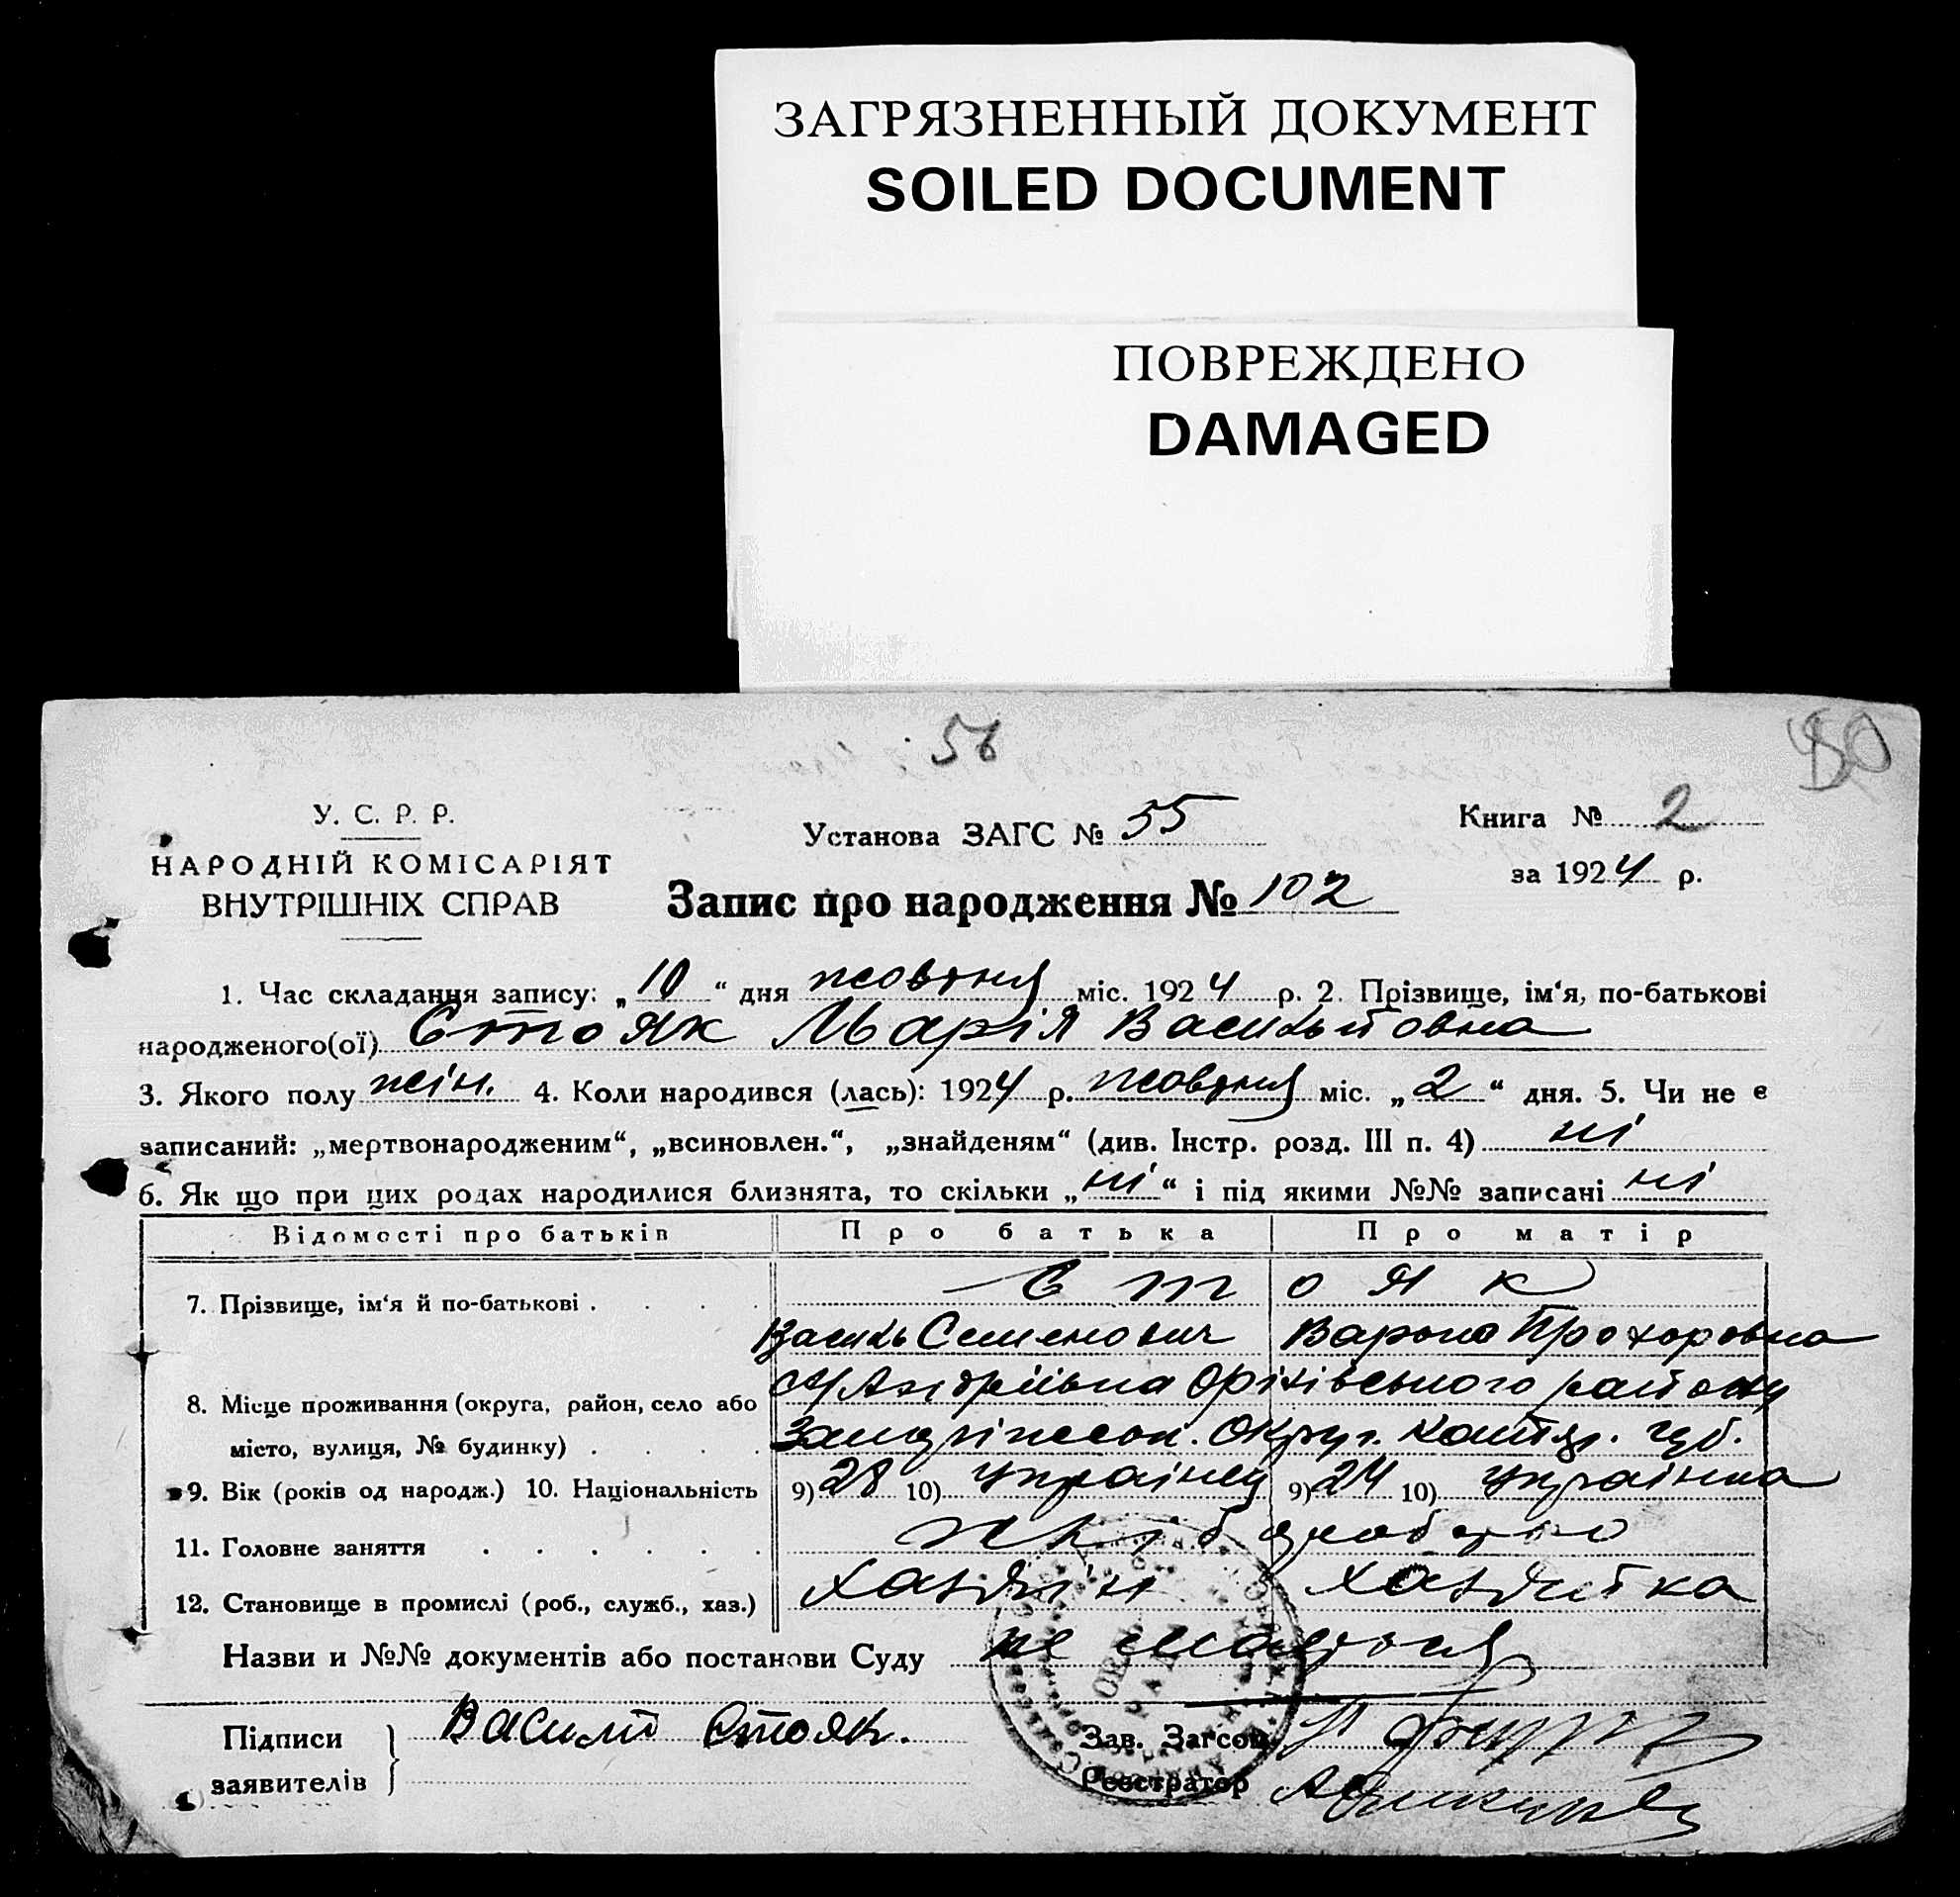 ЗАГРЯЗНЕННЫЙ ДОКУМЕНТ
SOILED DOCUMENT
ПОВРЕЖДЕНО
DAMAGED
56
80
У. С. Р. Р.
НАРОДНІЙ КОМІСАРІЯТ
ВНУТРІШНІХ СПРАВ
Установа ЗАГС № 55
Книга № 2
за 1924 р.
Запис про народження № 102
1. Час складання запису: „10“ дня жовтня міс. 1924 р. 2. Прізвище, ім‘я, по-батькові
народженого(ої) Стояк Марія Васильовна
3. Якого полу жін. 4. Коли народився (лась): 1924 р. жовтня міс. „2“ дня. 5. Чи не є
записаний: „мертвонародженим“, „всиновлен.“, „знайденям“ (див. Інстр. розд. III п. 4) ні
6. Як що при цих родах народилися близнята, то скільки „ні“ і під якими №№ записані ні
Відомості про батьків Про батька Про матір
7. Прізвище, ім‘я й по-батькові . . . . Стояк
Василь Семенович Варвара Прохоровна
8. Місце проживання (округа, район, село або Андріївка Оріхівського району
місто, вулиця, № будинку) . . . . Запоріжськ. Округ. Катер. губ.
9. Вік (років од народж.) 10. Національність 9) 28 10) українец 9) 24 10) українка
11. Головне заняття . . . . . . хлібороб
12. Становище в промислі (роб., служб., хаз.) хазяїн хазяйка
Назви и №№ документів або постанови Суду не мається
Підписи
заявителів
Василь Стояк.
Зав. Загсом
Реєстратор